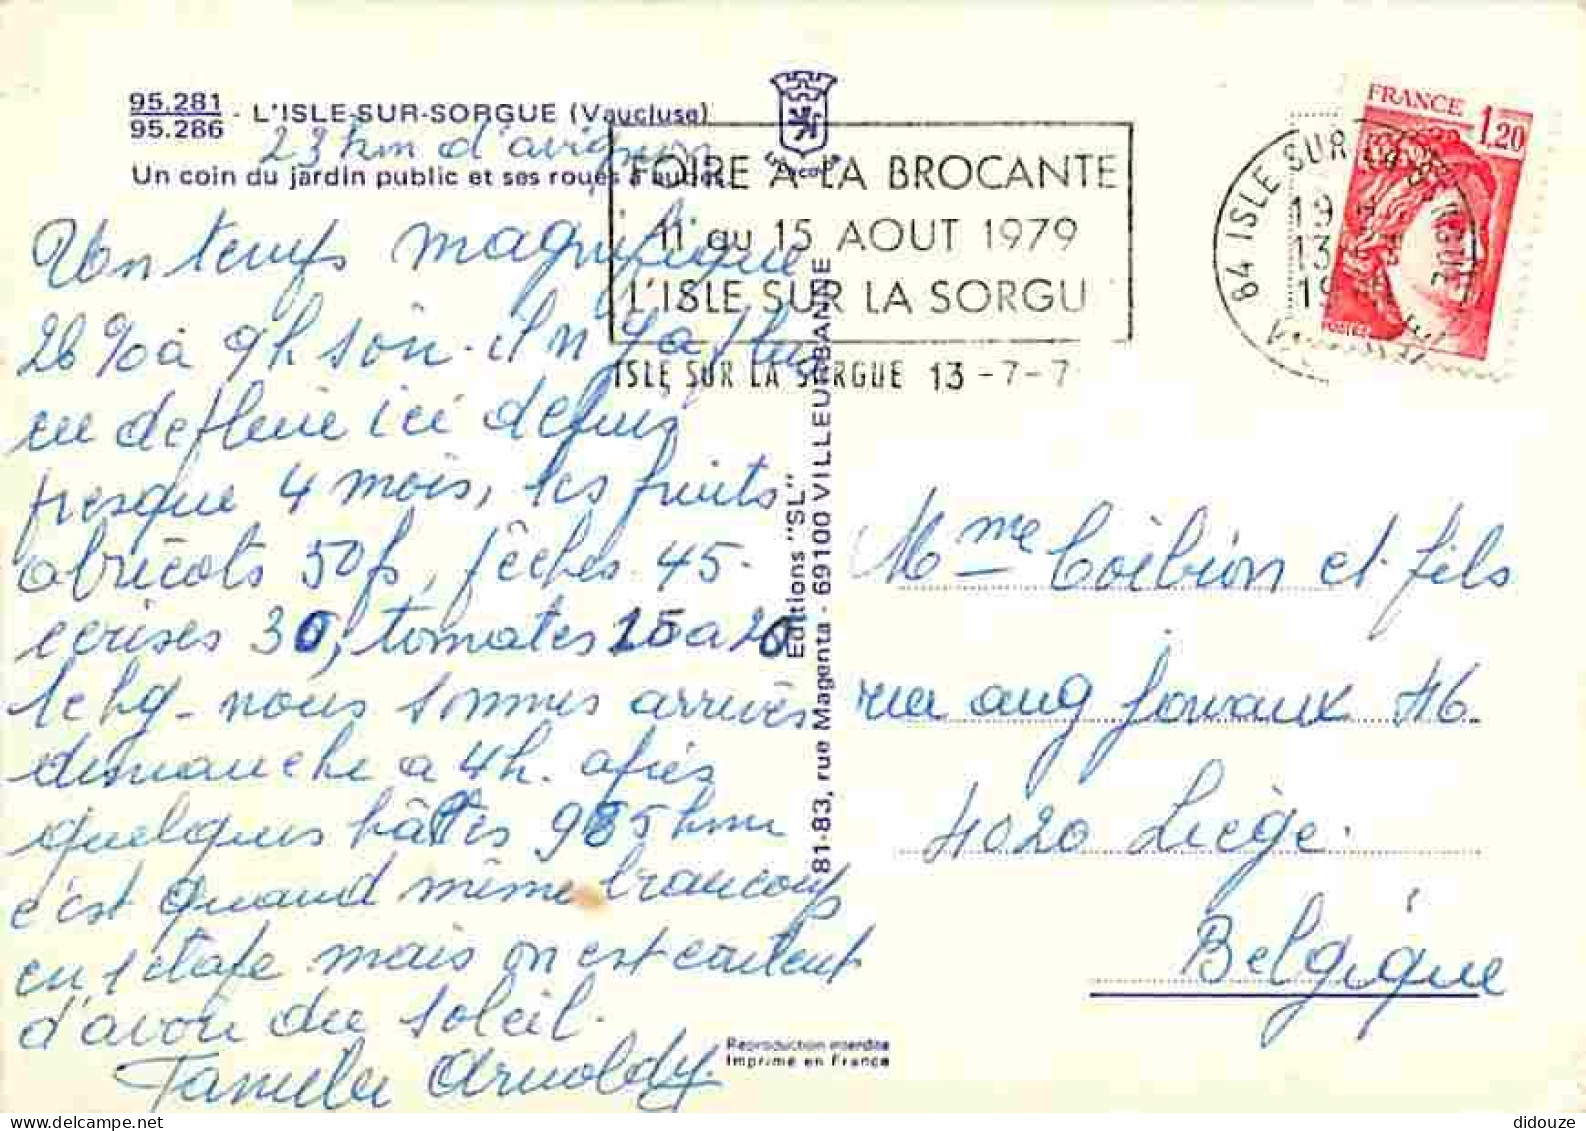 95.281
95.286 - L'ISLE-SUR-SORGUE (Vaucluse)
23 km d'avignon
Un coin du jardin public et ses roues à aubes
Un temps magnifique
26 % à 9h soir. il n'y a plus
eu de pluie ici depuis
presque 4 mois, les fruits
abricots 50f, pêches 45-
cerises 30, tomates 15 a 20
le kg - nous sommes arrivés
dimanche a 4h. après
quelques haltes 985 km
c'est quand même beaucoup
en 1 étape mais on est content
d'avoir du soleil.
Famille Arnoldy.
FOIRE A LA BROCANTE
11 au 15 AOUT 1979
L'ISLE SUR LA SORGU
ISLE SUR LA SORGUE 13 -7-7
84 ISLE SUR LA SORGUE
19
13
19
FRANCE 1,20
POSTES
Editions "SL"
81-83, rue Magenta - 69100 VILLEURBANNE
Mme Coibion et fils
rue aug Jowaux 46
4020 Liège.
Belgique
Reproduction interdite
Imprimé en France
didouze